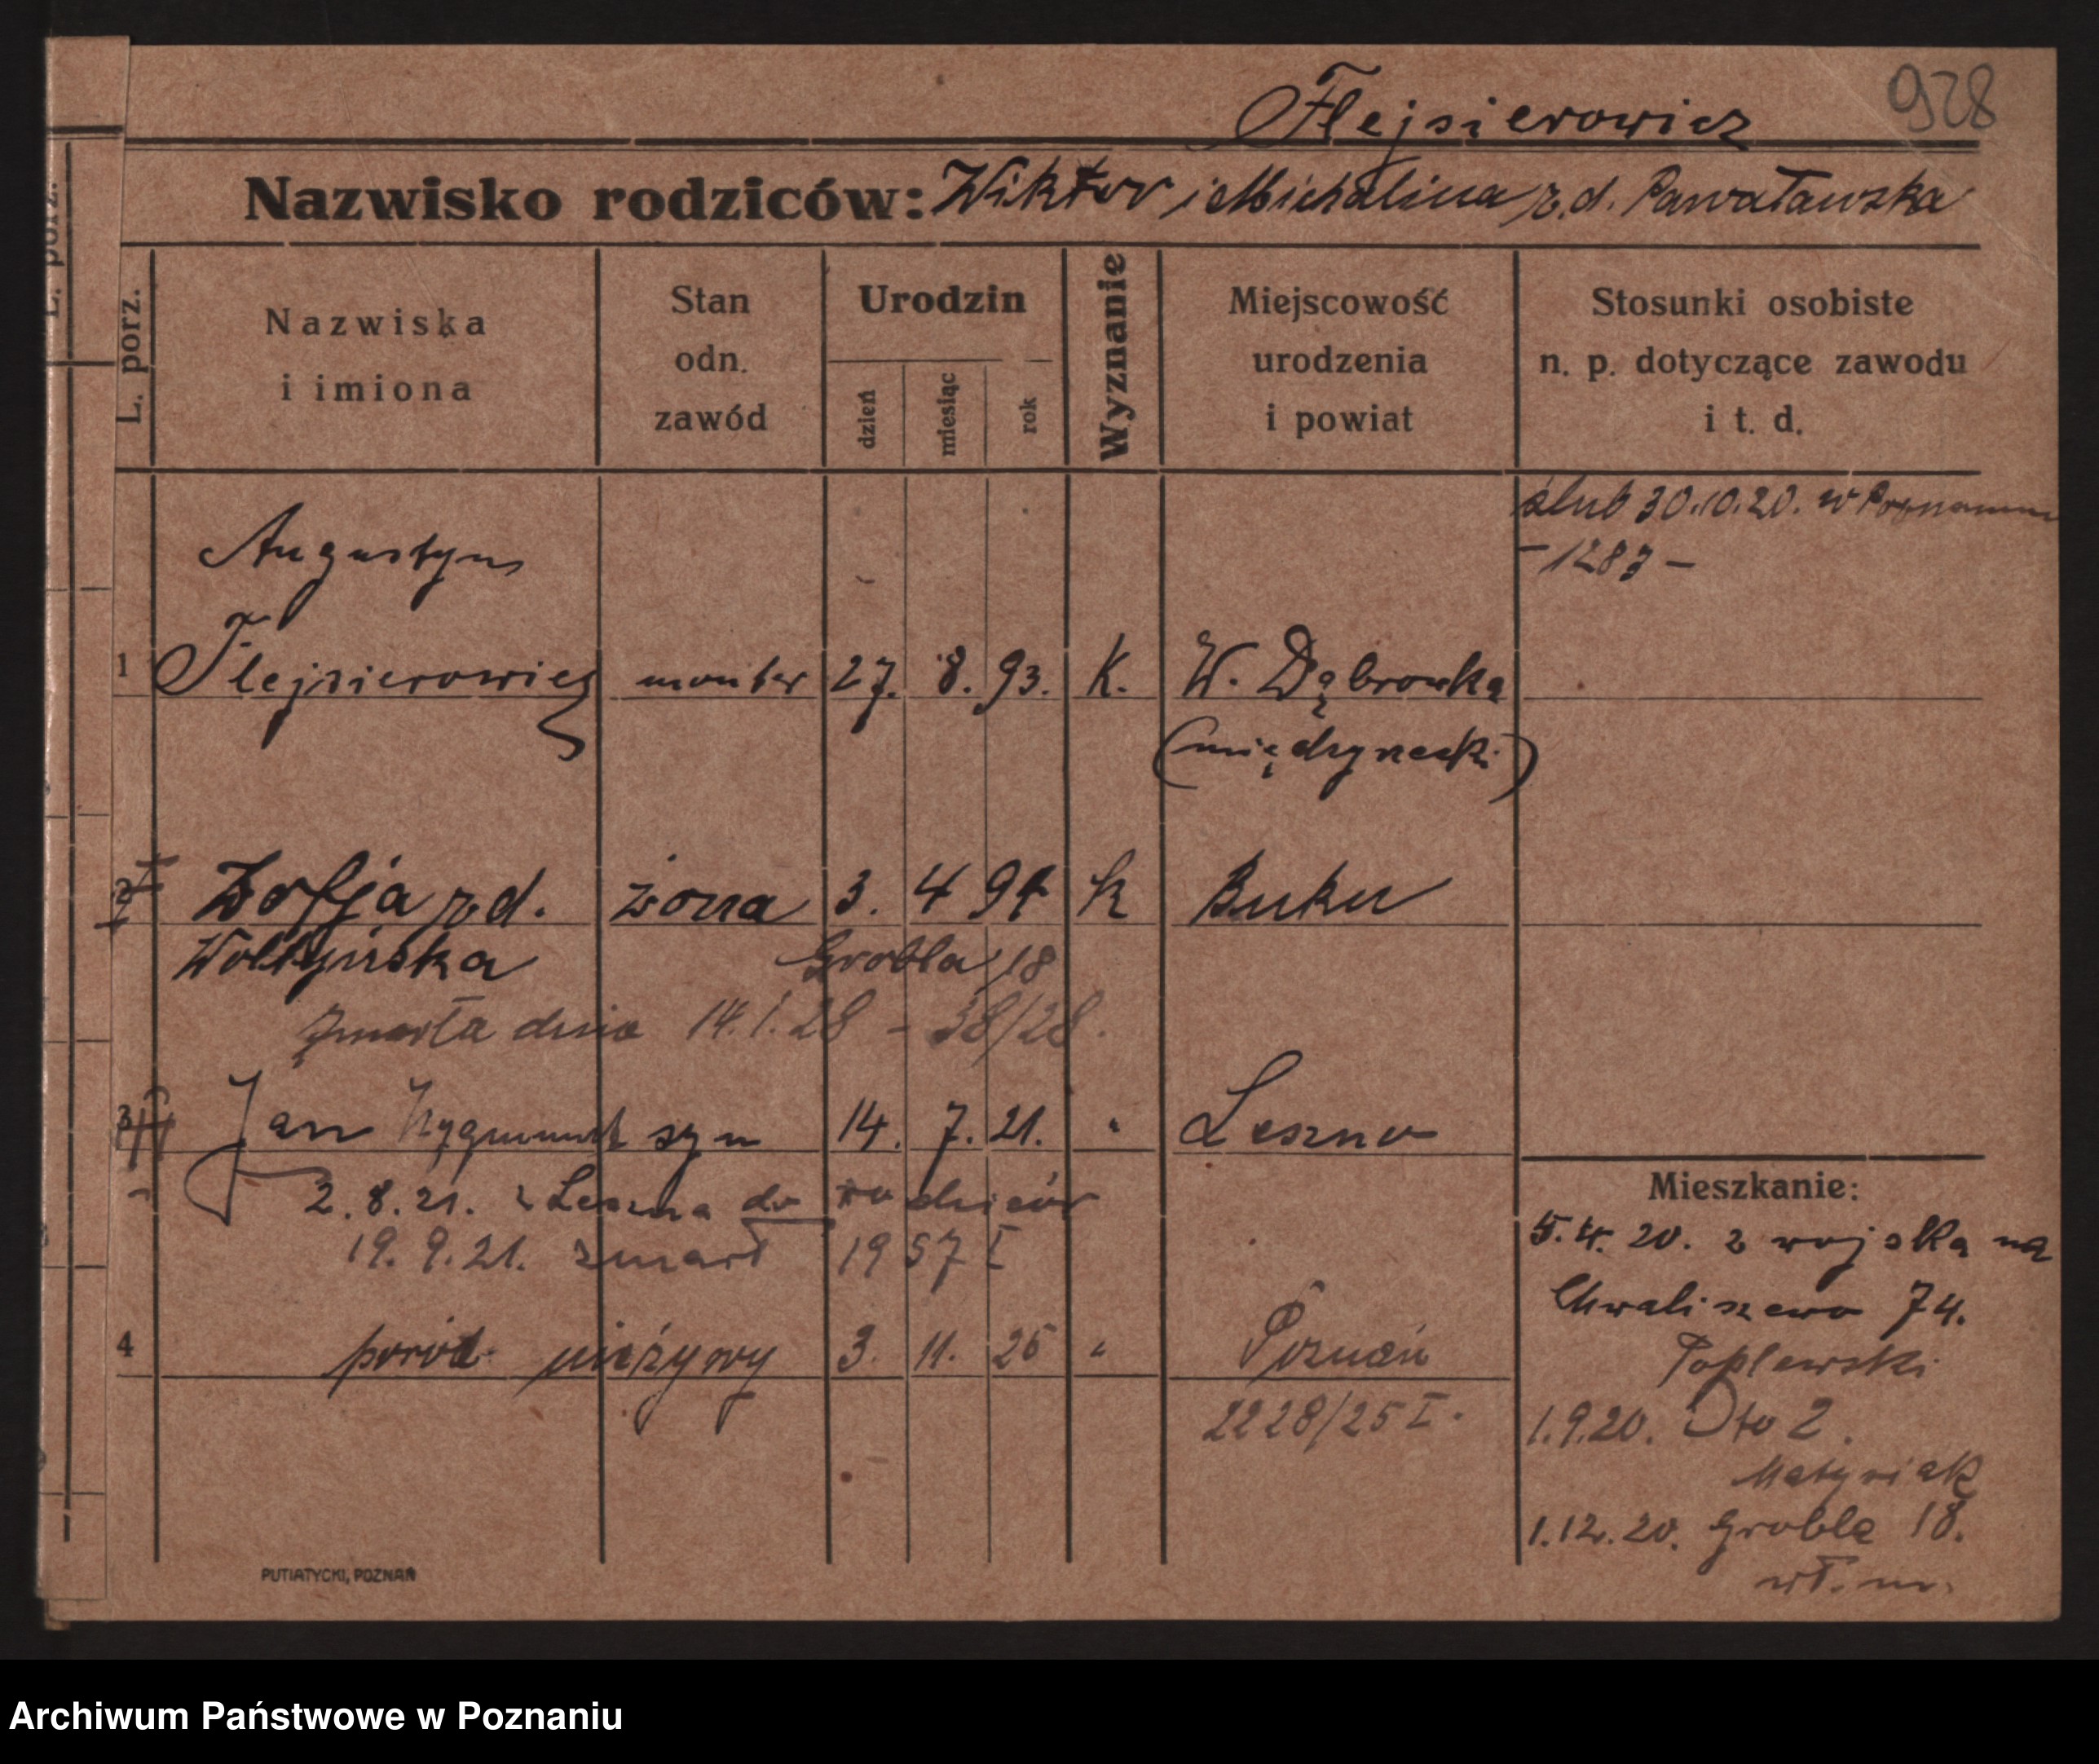 928
Flejsierowicz
Nazwisko rodziców: Wiktor i Michalina z d. Pawałowska
L. porz.
Nazwiska
i imiona
Stan
odn.
zawód
Urodzin
dzień
miesiąc
rok
Wyznanie
Miejscowość
urodzenia
i powiat
Stosunki osobiste
n. p. dotyczące zawodu
i t. d.
ślub 30.10.20. w Poznaniu
- 1283 -
Augustyn
1 Flejsierowicz monter 27. 8. 93. K. W. Dąbrowka
(międzyrzecki)
2 Zofja z d. żona 3. 4 94 k Buku
Grobla 18
zmarła dnia 14.1.28 - 38/28.
3 Jan Zygmunt syn 14. 7. 21. " Leszno
2.8.21. z Leszna do rodziców
19.9.21. zmarł 1957 I
4 poród nieżywy 3. 11. 25 " Poznań
2228/25 I.
Mieszkanie:
5.4.20. z wojska na
Chwaliszewo 74.
Poplewski
1.9.20. Dto 2.
Matysiak
1.12.20. Grobla 18.
wł. m.
PUTIATYCKI, POZNAŃ
Archiwum Państwowe w Poznaniu